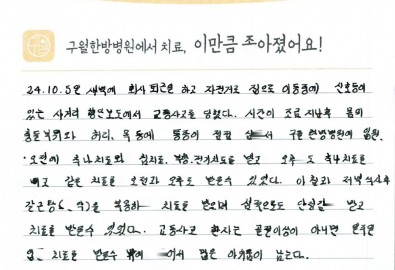 구월한방병원에서 치료, 이만큼 조아졌어요!
24.10.5일 새벽에 회사 퇴근을 하고 자전거로 집으로 이동중에 신호등이
있는 사거리 횡단보도에서 교통사고를 당했다. 시간이 조금 지난후 몸의
허리, 목 등에 통증이 점점 구월한방병원에 입원.
오전에 추나치료와 침치료, 전기치료를 받고 오후 도 추나치료를
받고 같은 치료를 오전과 오후로 받을수 있었다. 아침과 저녁 식사후
복용하 치료를 받으며 심적으로도 안정감 받고
치료를 받을수 있었다. 교통사고 환자는 골절이상이 아니면
치료를 받을수 밖에 많은 아쉬움이 남는다.